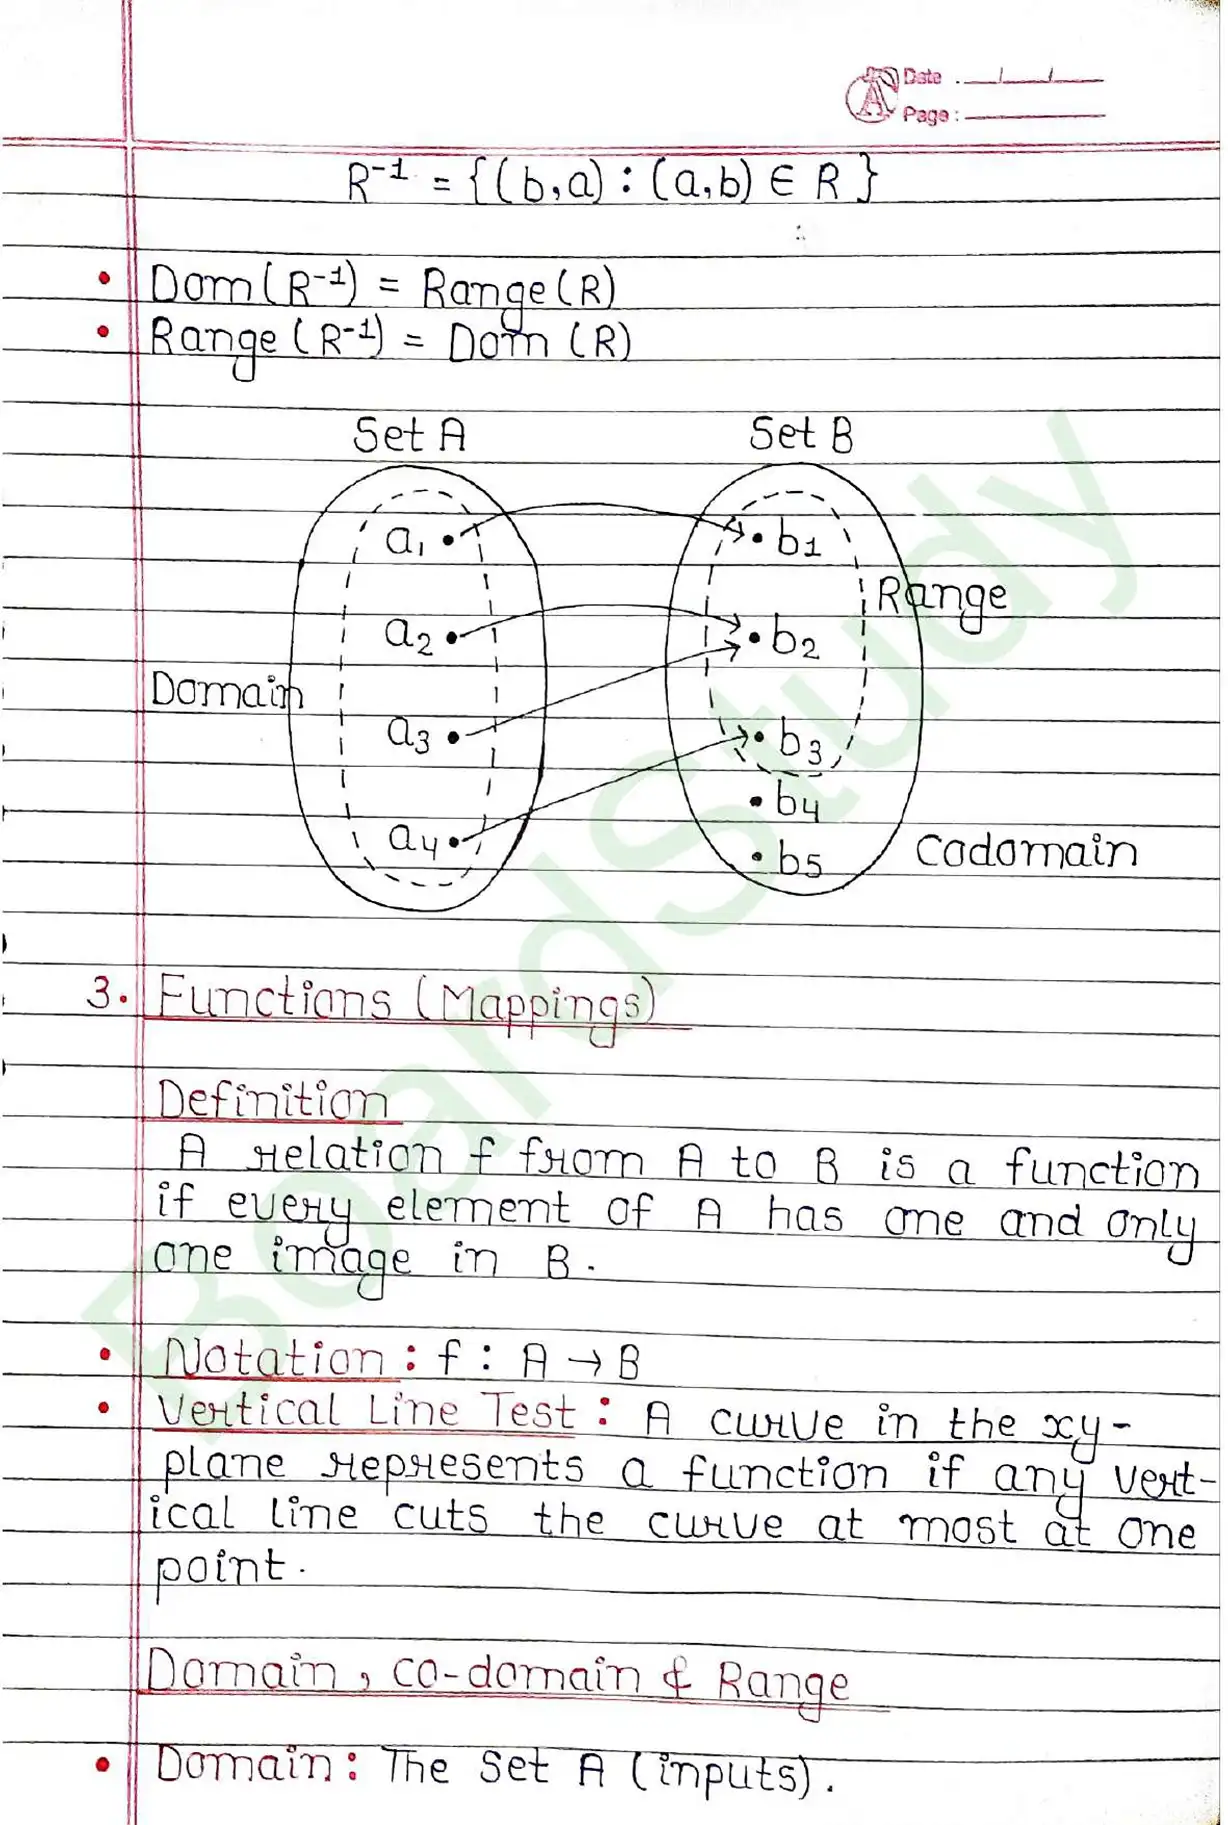 Date . __/__/__
Page : ______
R⁻¹ = {(b,a) : (a,b) ∈ R }
• Dom(R⁻¹) = Range(R)
• Range(R⁻¹) = Dom (R)
Set A Set B
a₁ b1
Range
a2 b2
Domain
a3 b3
b4
a4 Codomain
b5
3. Functions (Mappings)
Definition
A relation f from A to B is a function
if every element of A has one and only
one image in B.
• Notation : f : A → B
• Vertical Line Test : A curve in the xy-
plane represents a function if any vert-
ical line cuts the curve at most at one
point.
Domain, co-domain & Range
• Domain : The Set A (inputs).
BoardStudy